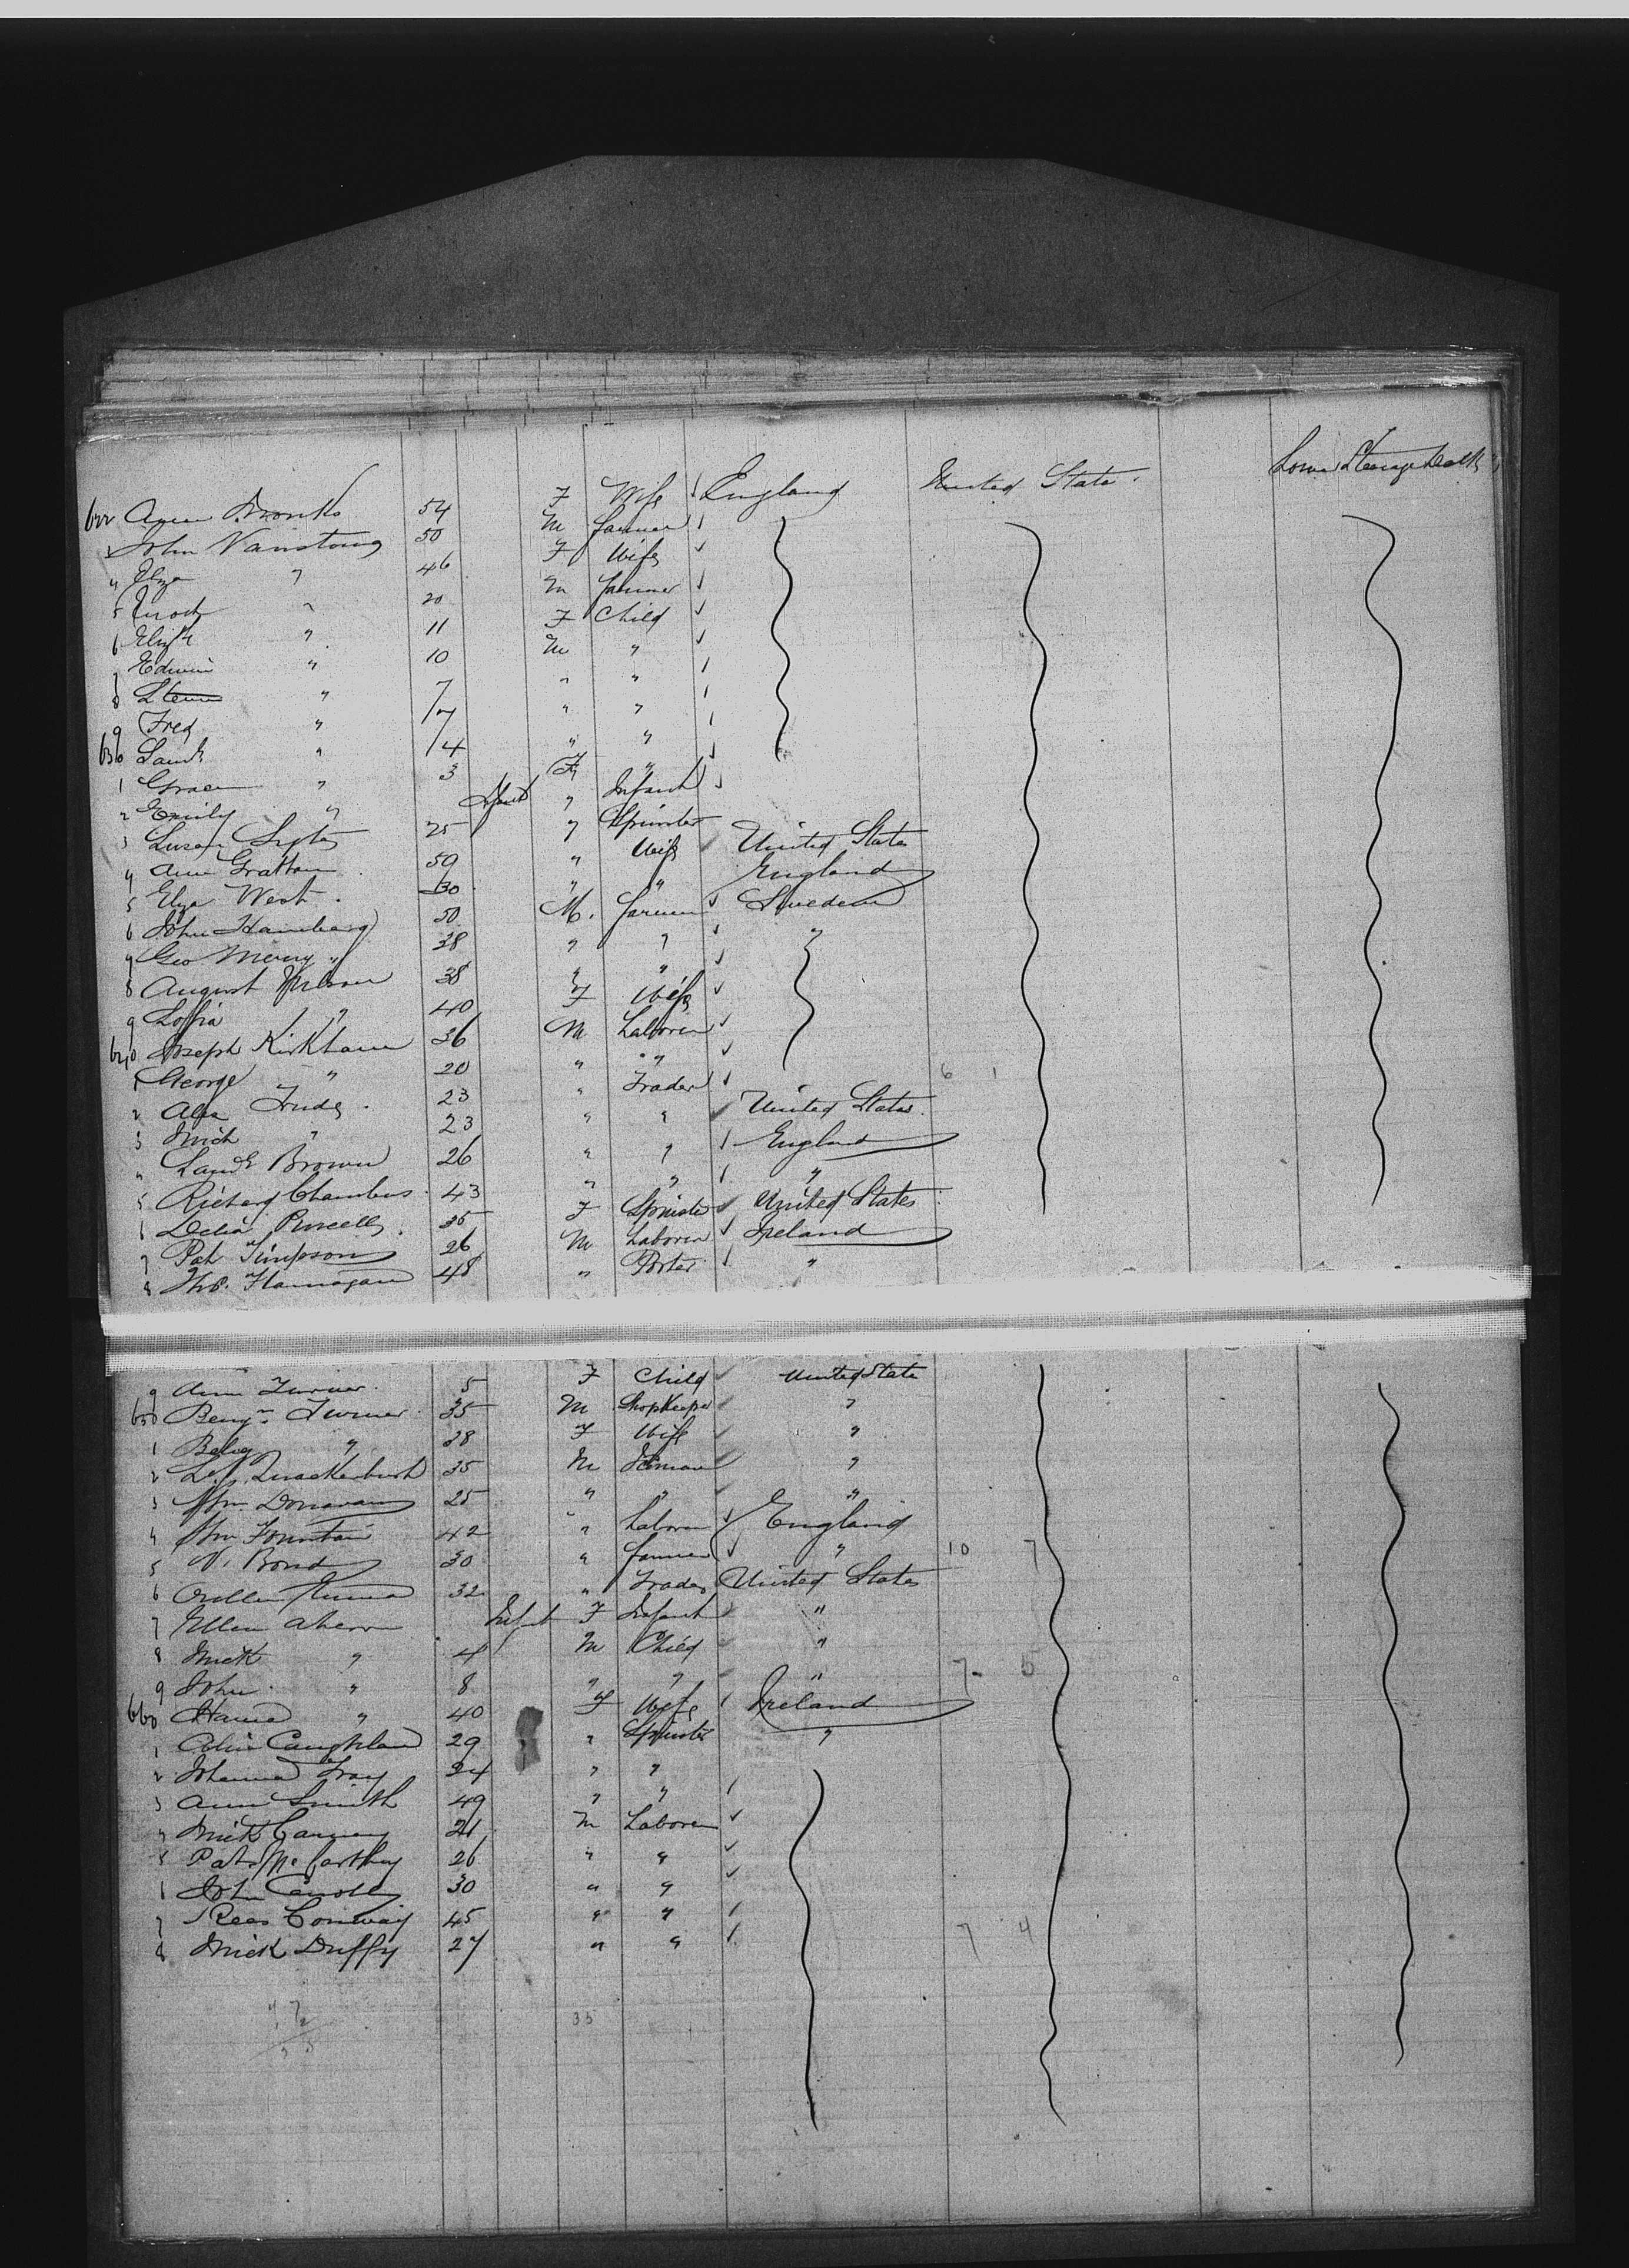 622 Ann Monks 54 F Wife England United State. Lower Steerage Deck
3 John Vanstone 50 M farmer
4 Eliza " 46 F Wife
5 Enoch " 20 M farmer
6 Elizth " 11 F Child
7 Edwin " 10 M "
8 " 7 " "
9 Fred " 7 " "
630 Saml " 4 " "
1 Grace " 3 F "
2 Emily " Infant " Infant
3 Susan 25 " Spinster United States
4 Ann Gratton 50 " Wife England
5 Elza West. 30 " " Sweden
6 John Hamberg 50 M. farmer "
7 Geo Merry " 28 " "
8 August 38 " "
9 Soffia " 40 F Wife
640 Joseph Kirkham 36 M Laborer
1 George " 20 " "
2 Alex 23 " Trader United States.
3 Mich " 23 " " England
4 Saml Brown 26 " " "
5 Richard Chambers 43 " " United States
6 Delia Purcell. 35 F Spinster Ireland
7 Pat Simpson 26 M Laborer "
8 Ths. Flannagan 48 " Porter
9 Ann Turner. 5 F Child United State
650 Benjn. Turner 35 M Shopkeeper "
1 " 28 F Wife "
2 Quackenbush 35 M "
3 Wm. Donavan 25 " " "
4 Wm Fountain 42 " Laborer England
5 W. Bond 30 " farmer " 10 7
6 32 " Trader United States
7 Ellen Ahern Infant F Infant "
8 Mick " 4 M Child "
9 John " 8 " " " 7 5
660 Hanna " 40 F Wife Ireland
1 Caughlan 29 " Spinster "
2 Johanna 24 " "
3 Ann Smith 49 " "
4 Mick 21 M Laborer
5 Pat McCarthy 26 " "
6 John 30 " "
7 Rees Conway 45 " "
8 Mick Duffy 27 " " 7 4
35